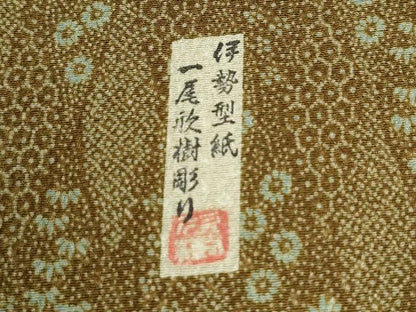 伊勢型紙
一尾欣樹彫り